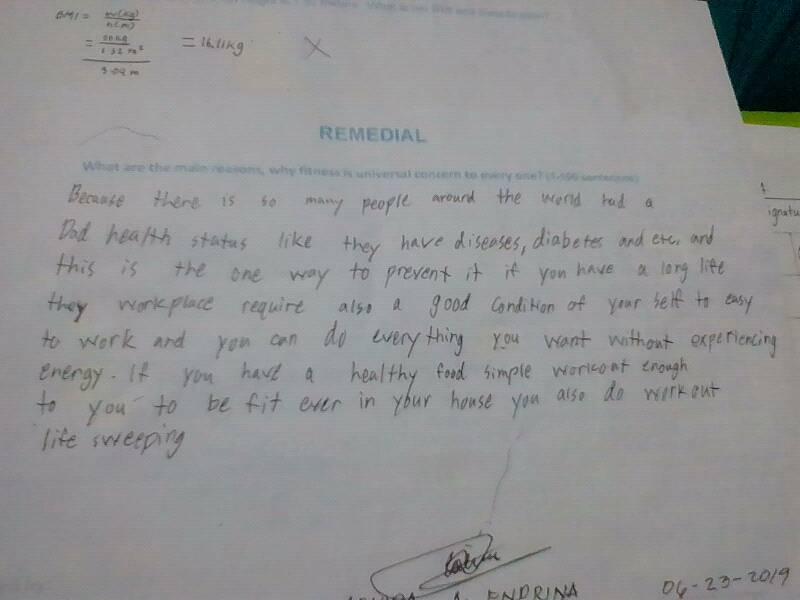 BMI =
= 16.11kg X
REMEDIAL
What are the main reasons, why fitness is universal concern to every one?
Because there is so many people around the world had a
Dad health status like they have diseases, diabetes and etc. and
this is the one way to prevent it if you have a long life
they workplace require also a good condition of your self to easy
to work and you can do everything you want without experiencing
energy. If you have a healthy food simple workout enough
to you to be fit ever in your house you also do workout
life sweeping
ENDRINA
06-23-2019